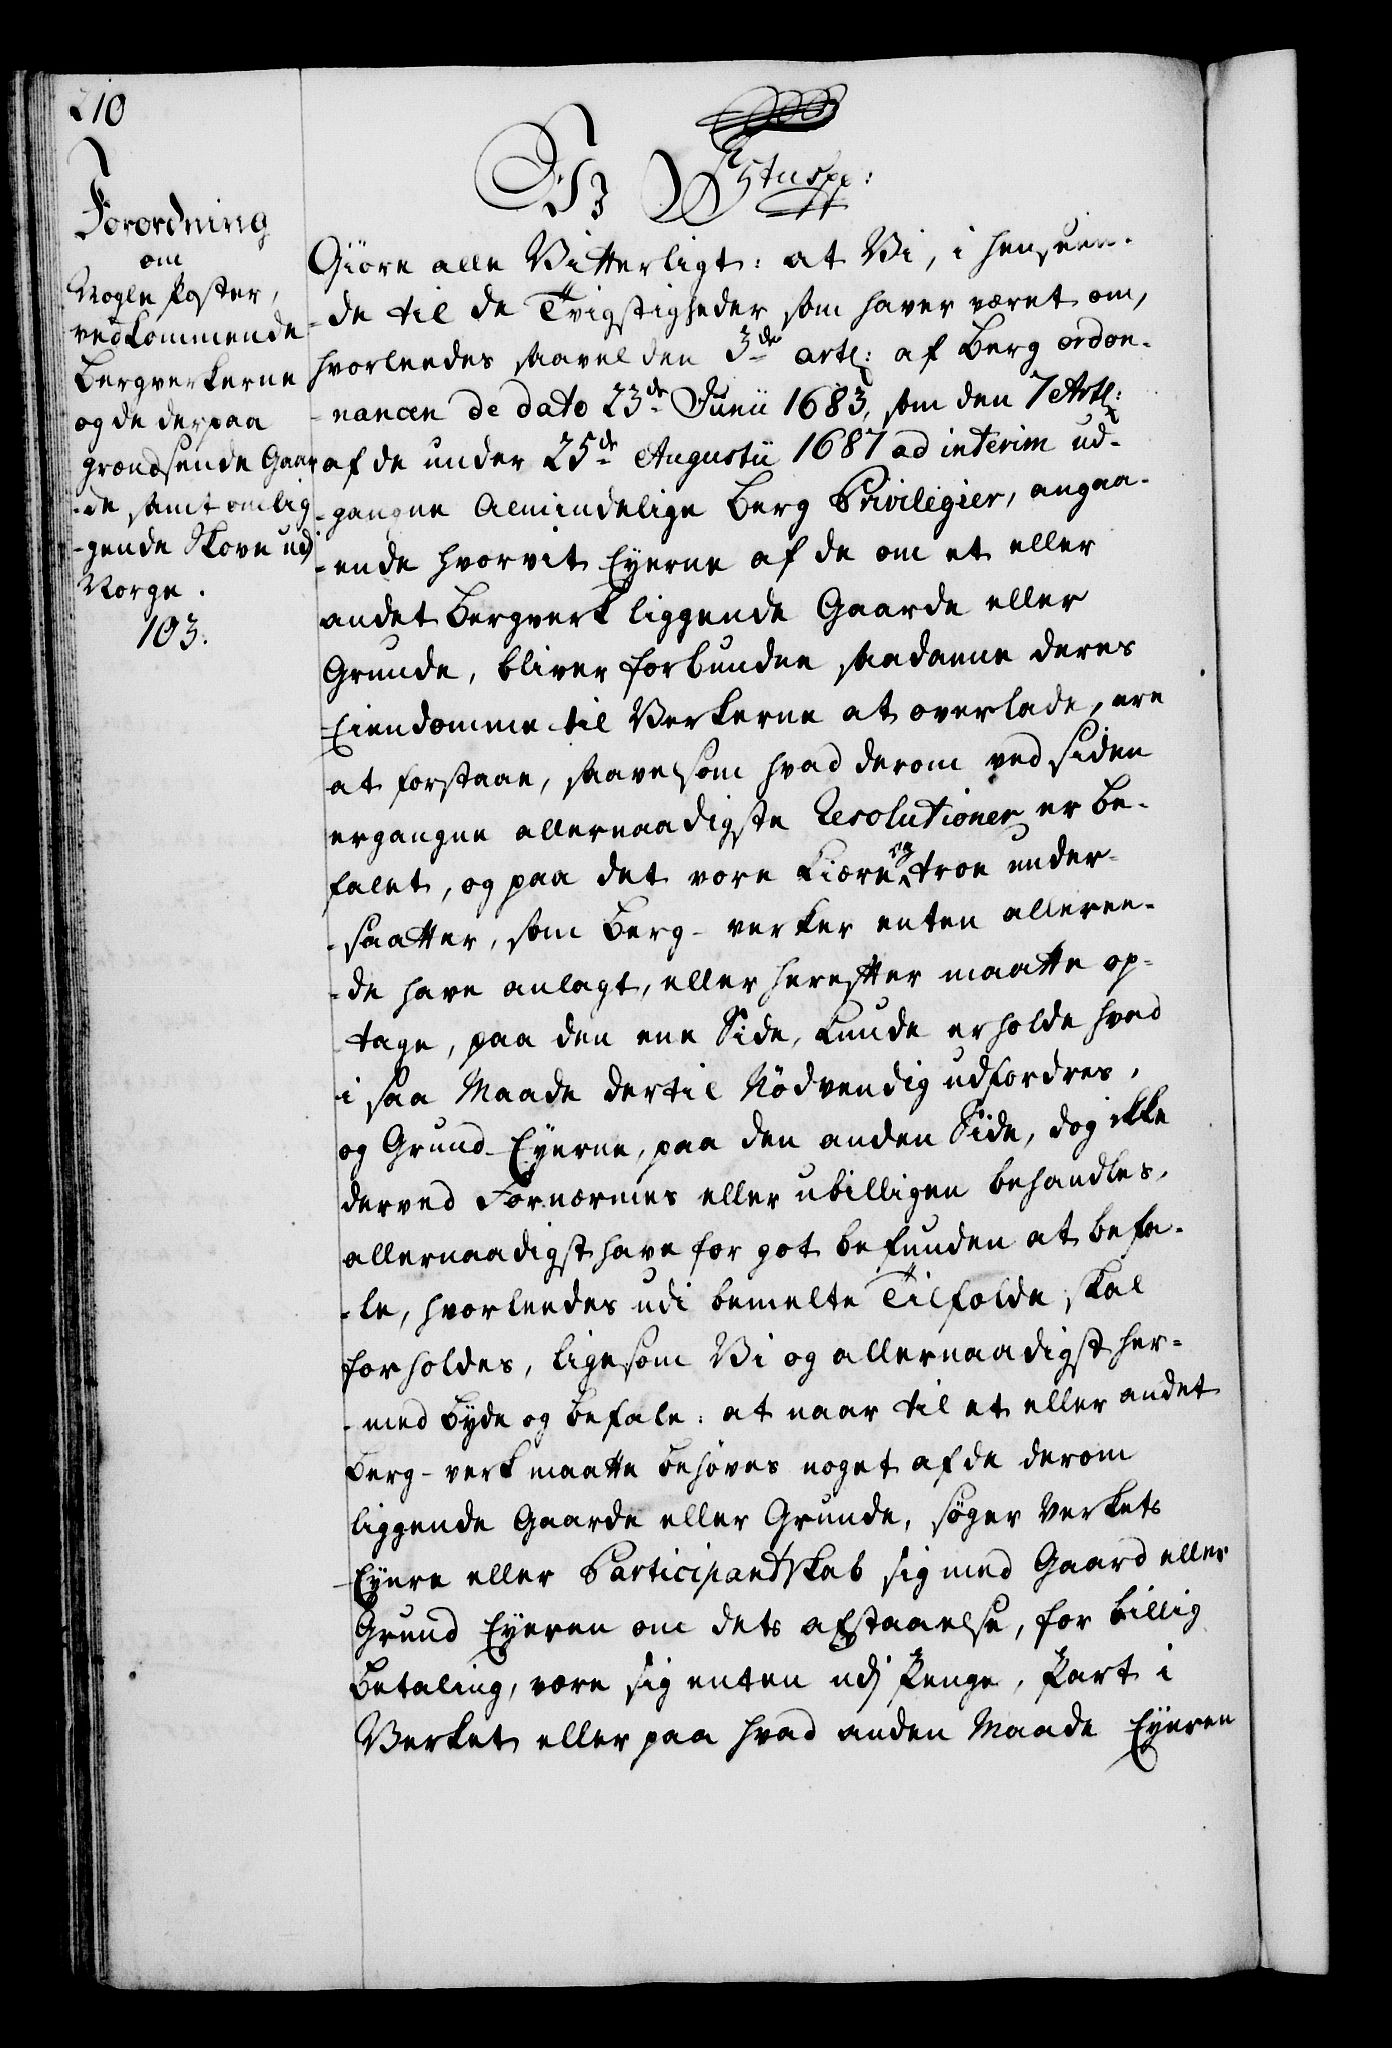 210
Forordning
om
Nogle Poster,
vedkommende
Bergverkerne
og de derpaa
grændsende Gaar
-de samt omlig
-gende Skove udj
Norge.
103.
Giøre alle Vitterligt: at Vi, i henseen-
-de til de Tvigstigheder som haver været om,
hvorleedes saavel den 3de artl: af Berg ordon-
-nancen de dato 23de Junii 1683, som den 7 Artl:
af de under 25de Augustii 1687 ad interim ud-
-gangne Almindelige Berg Privilegier, angaa-
-ende hvorvit Eyerne af de om et eller
andet Bergverk liggende Gaarde eller
Grunde, bliver forbunden saadanne deres
Eiendomme til Verkerne at overlade, ere
at forstaae, saavelsom hvad derom ved siden
ergangne allernaadigste Resolutioner er be-
falet, og paa det vore kiære og troe under-
-saatter, som Berg-verker enten alleree-
-de have anlagt, eller herefter maatte op-
-tage, paa den ene Side, kunde erholde hvad
i saa Maade dertil Nödvendig udfordres,
og Grund-Eyerne, paa den anden Side, dog ikke
derved Fornærmes eller ubilligen behandles,
allernaadigst have for got befunden at befa-
-le, hvorleedes udi bemelte Tilfælde skal
forholdes, ligesom Vi og allernaadigst her-
-med byde og befale: at naar til et eller andet
Berg-verk maatte behøves noget af de derom
liggende Gaarde eller Grunde, søger Verkets
Eyere eller Participantskab sig med Gaard eller
Grund Eyeren om dets afstaaelse, for billig
Betaling, være sig enten udj Penge, Part i
Verket eller paa hvad anden Maade Eyeren